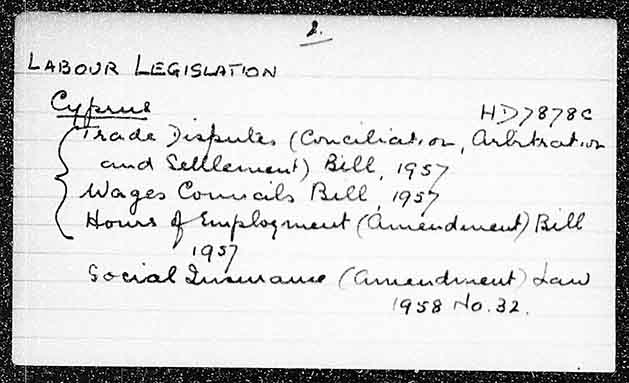 2.
LABOUR LEGISLATION
Cyprus HD7878C
Trade Disputes (Conciliation, Arbitration
and Settlement) Bill, 1957
Wages Councils Bill, 1957
Hours of Employment (Amendment) Bill
1957
Social Insurance (Amendment) Law
1958 No. 32.